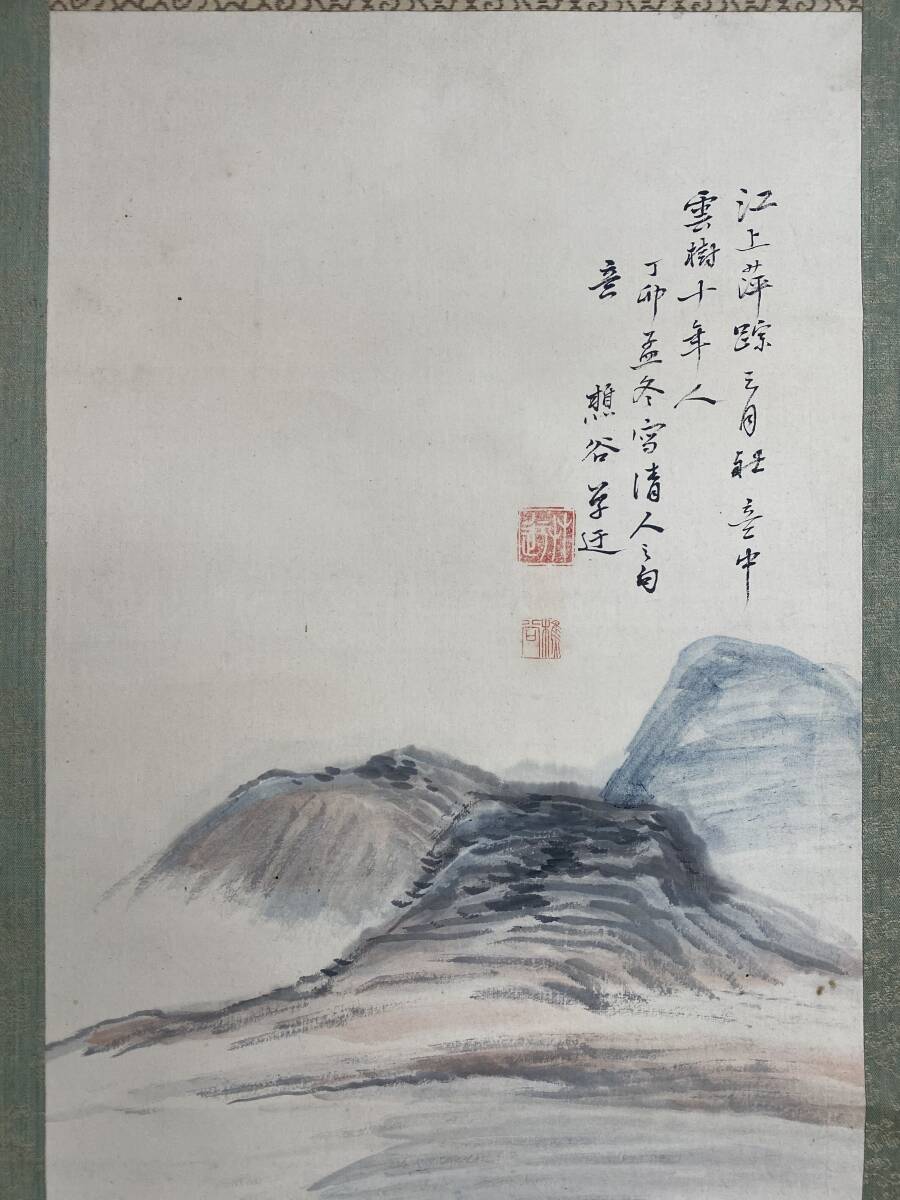 江上萍踪三月駐意中
雲樹十年人
丁卯孟冬寫清人之句
意 樵谷草迂
樵谷